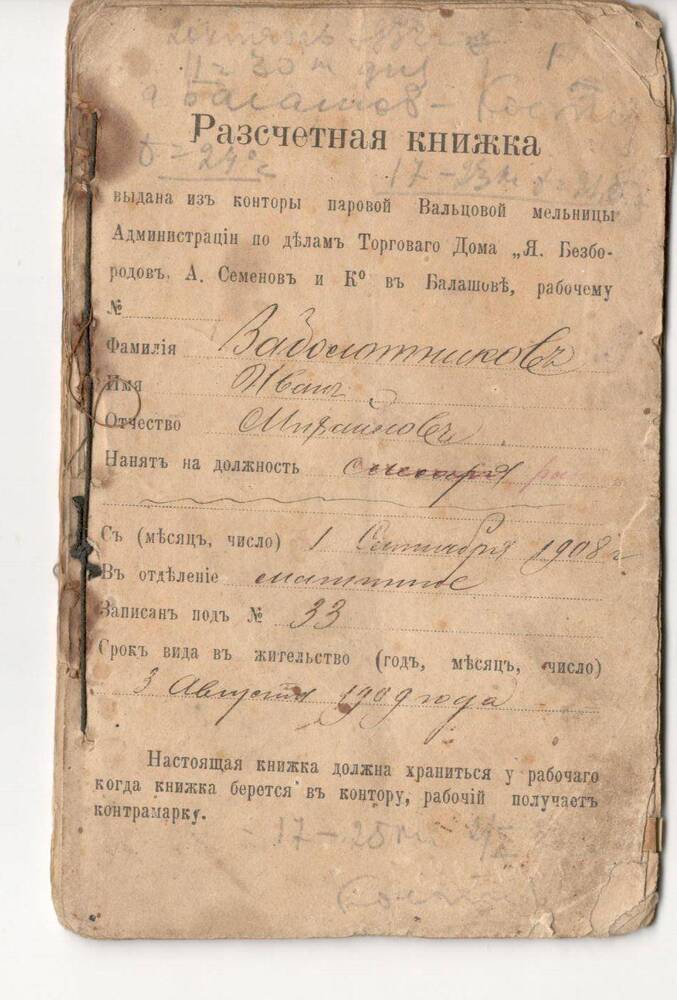 t = 24°C
Разсчетная книжка
выдана изъ конторы паровой Вальцовой мельницы
Администраціи по дѣламъ Торговаго Дома „Я. Безбо-
родовъ, А. Семеновъ и К° въ Балашовѣ, рабочему
№
Фамилія Заболотниковъ
Имя Иванъ
Отчество Михайловъ
Нанятъ на должность
Съ (мѣсяцъ, число) 1 Сентября 1908 г
Въ отдѣленіе машинное
Записанъ подъ № 33
Срокъ вида въ жительство (годъ, мѣсяцъ, число)
3 Августа 1909 года
Настоящая книжка должна храниться у рабочаго
когда книжка берется въ контору, рабочій получаетъ
контрамарку.